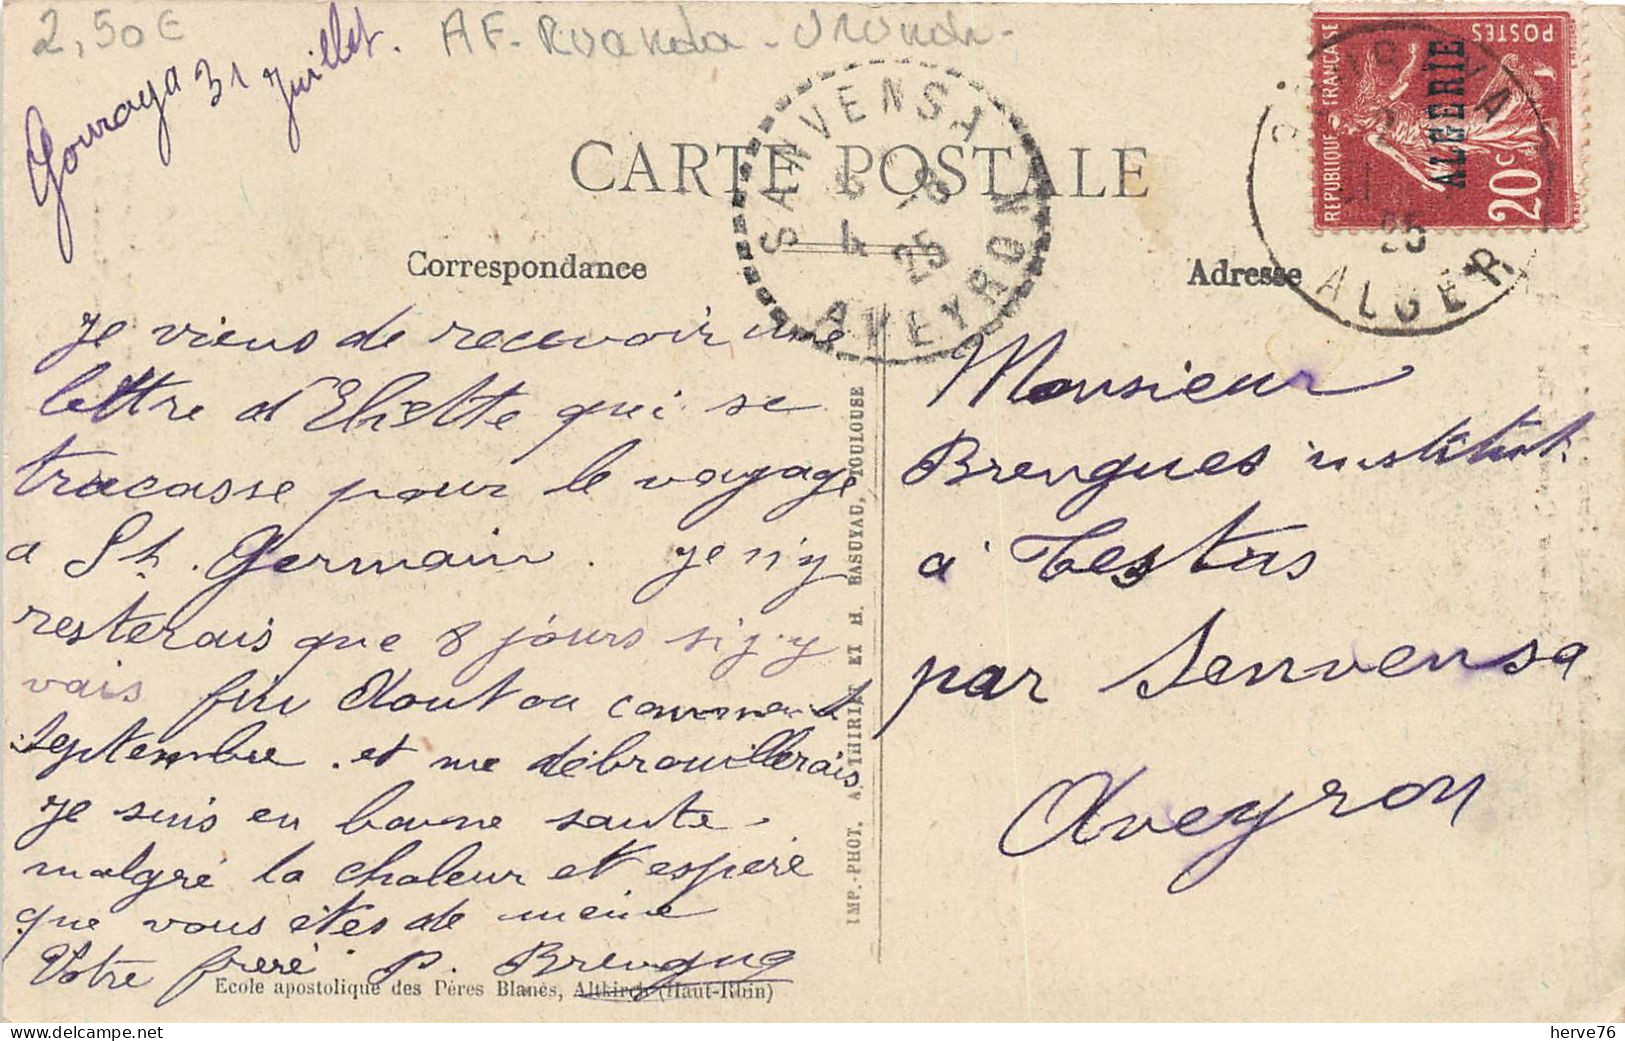 2,50€
AF - Ruanda - Urundi -
Gouraya 31 Juillet.
CARTE POSTALE
SANVENSA
6 -8
4 25
AVEYRON
REPUBLIQUE FRANÇAISE
POSTES
ALGERIE
20c
25
ALGER
Correspondance
Adresse
Je viens de recevoir une
lettre d'Eliette qui se
tracasse pour le voyage
a St. Germain. je n'y
resterais que 8 jours si j'y
vais fin Aout ou comment
Septembre. et me débrouillerais
Je suis en bonne sante
malgré la chaleur et espère
que vous êtes de meme
Votre frere P. Brengues
Monsieur
Brengues institut.
à Testas
par Senvensa
Aveyron
IMP.-PHOT. A. THIRIAT ET H. BASUYAU, TOULOUSE
Ecole apostolique des Pères Blancs, Altkirch (Haut-Rhin)
herve76